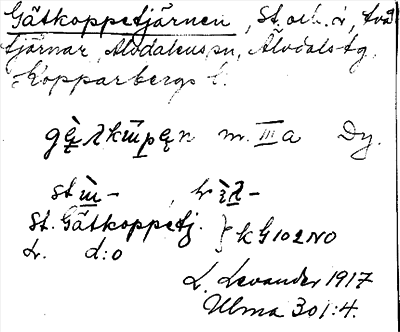 Gåtkoppetjärnen, St. och L., två
tjärnar, Älvdalens sn, Älvdals tg
Kopparbergs l.
m. III a Dy.
St. Gåtkoppetj. } k G 102 NO
L. d:o
L. Levander 1917
Ulma 301:4.